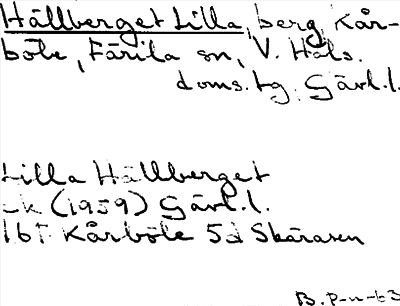 Hällberget Lilla, berg, Kår-
böle, Färila sn, V. Häls.
doms.tg. Gävl.l.
Lilla Hällberget
ek (1959) Gävl.l.
16f Kårböle 5d Skärasen
B. P-n-63